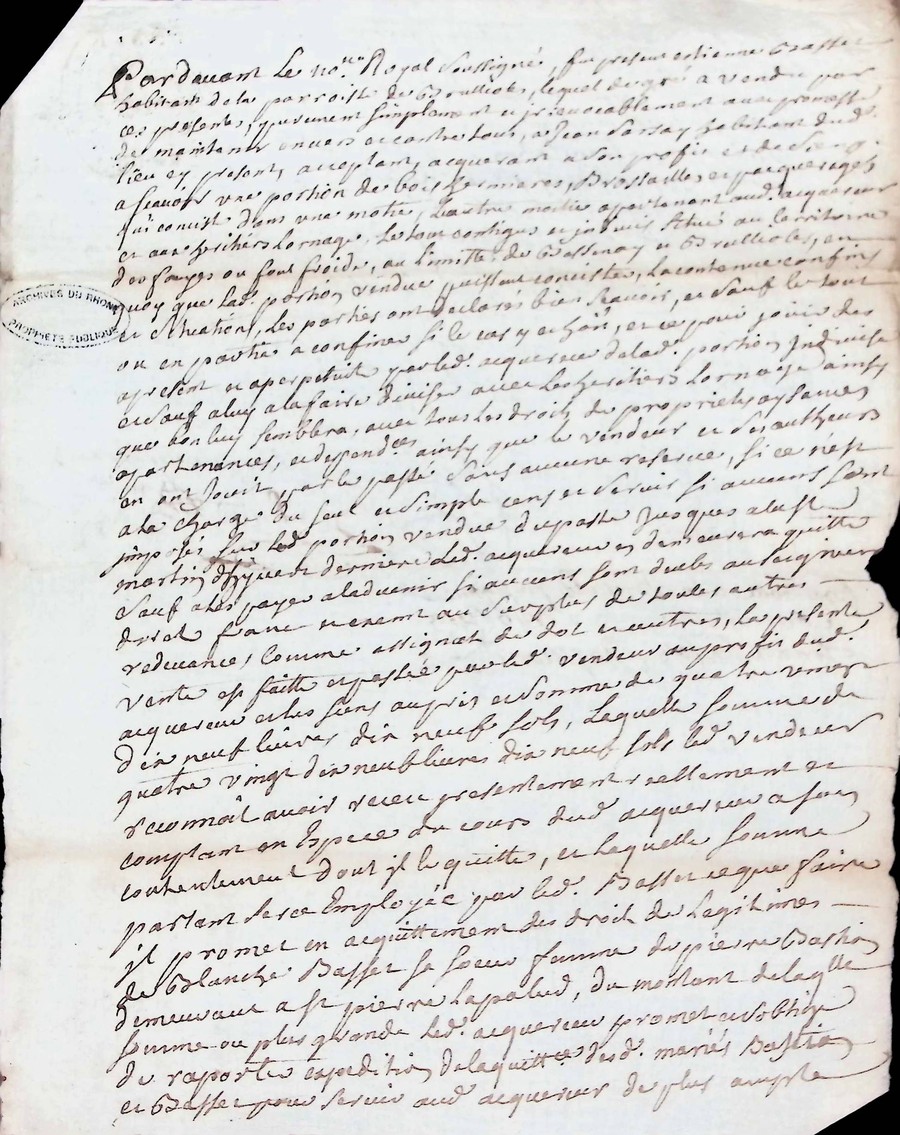 Pardavant Le no.re Royal Soussigné, fut présent estienne Basset
habitant de la parroisse de Brullioles, lequel de gré a vendu par
ces presentes, purement simplement et jrrevocablement avec promesse
de maintenir envers et contre tous, a Jean habitant dud.
lieu ey present, acceptant, acquerant a Son profit et de Siens
a scavoir une portion de bois Brossailles et paquerages
qui consist dans une motié, Lautre motié apartenant aud. acquereur
et aux heritiers Lornage, Le tout contigus et jndivis Situé au territoire
des ou font froide, au Limitte de Bessenay et Brullioles, en
quoy que lad. portion vendue puisse concister, La contenue confins
et Situation, Les parties ont declarés bien Scavoir, et Sauf le tout
ou en partie a confiner Si le cas y echoit, et ce pour jouir des
apresent et aperpetuité par led. acquereur de lad. portion Indivise
et Sauf a luy a la faire diviser avec Les heritiers Lornage ainsy
que bon luy Semblera, avec tous Les droits de proprietés aysances
apartenances, et depend.ces ainsy que le vendeur et Ses autheurs
en ont Jouit par le passé Sans aucune reserve, Si ce n'est
a la charge du Seul et Simple cens et Servis Si aucuns Sont
jmposés Sur lad. portion vendue du passé Jusques a la St
martin d'hyvert derniere Led. acquereur en demeurera quitte
Sauf a les payer a ladvenir Si aucuns Sont deubs au Seigneur
direct franc et exemt au Surplus de toutes autres
redevances, Comme assignat de dot et autres, La presente
vente est faitte et passée par led. vendeur au profit dud.
acquereur et les Siens au prix et Somme de quatre vingt
Dix neuf livres dix neuf Sols, Laquelle Somme de
quatre vingt dix neuf livres dix neuf Sols led. vendeur
reconnoit avoir receu presentement reellement et
comptant en Espece du cours dud. acquereur a Son
contentement dont jl le quitte, et Laquelle Somme
partant Sera Employée par led. Basset ce que faire
jl promet en acquittement des droit de Legitimes
de Blanche Basset Sa Soeur famme de pierre Bastion
demeurant a St pierre Lapalud, du montant de laqlle
Somme ou plus grande Led. acquereur promet et S'oblige
de raporter expedition de la quitt.ce desd. mariés Bastion
et Basset pour Servir aud. acquereur de plus ample
ARCHIVES DU RHONE
PROPRIÉTÉ PUBLIQUE